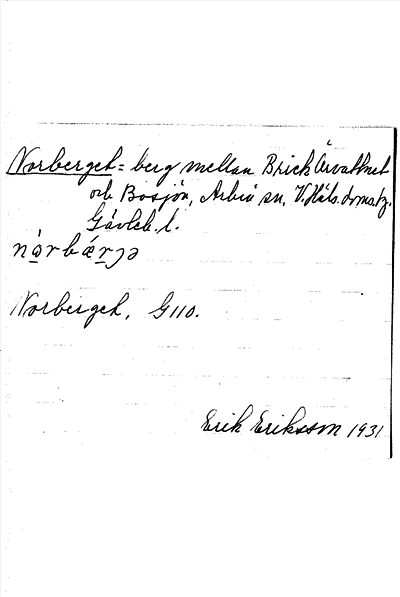 Norberget = berg mellan Brickåsvattnet
och Bosjön, Arbrå sn, V. Häls. domsg.
Gävleb. l.
nɑ̀rbæ̀rjə
Norberget, G110.
Erik Eriksson 1931